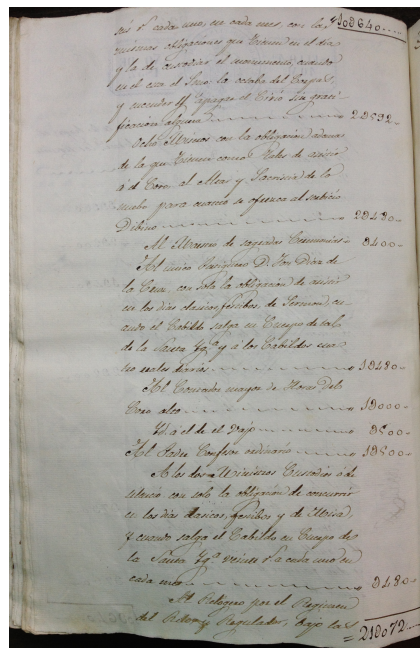 seis rs cada uno, en cada mes, con las 100640
mismas obligaciones que tienen en el dia
y la de custodiar el monumento, cuando
en el este el Smo. la octaba del Corpus,
y encender y apagar el Cirio sin grati-
ficacion alguna 20592
Ocho Mrinos con la obligacion ademas
de la que tienen como tales de asistir
á d. Coro, al Altar y Sacristia de la
misma para cuanto se ofrezca al servicio
Dibino 20480
Al Maestro de sagradas Ceremonias 0400
Al unico Pertiguero D. Diaz de
la con sola la obligacion de asistir
en los dias clasicos, festibos, de Sermon, cu-
ando el Cabildo salga en Cuerpo de tal
de la Santa Yga y á los Cabildos cua-
tro reales diarios 10480
Al Contador mayor de Horas del
Coro alto 10000
Yd. al de el vajo 0500
Al Padre Confesor ordinario 10500
A los dos Ministros Custodios ó de
silencio con solo la obligacion de concurrir
en los dias clasicos, festibos y de Misa,
y cuando salga el Cabildo en Cuerpo de
la Santa Yga veinte rs a cada uno en
cada mes 0480
Al Relogero por el Regimen
del Relox y Regulador, bajo las
= 218072